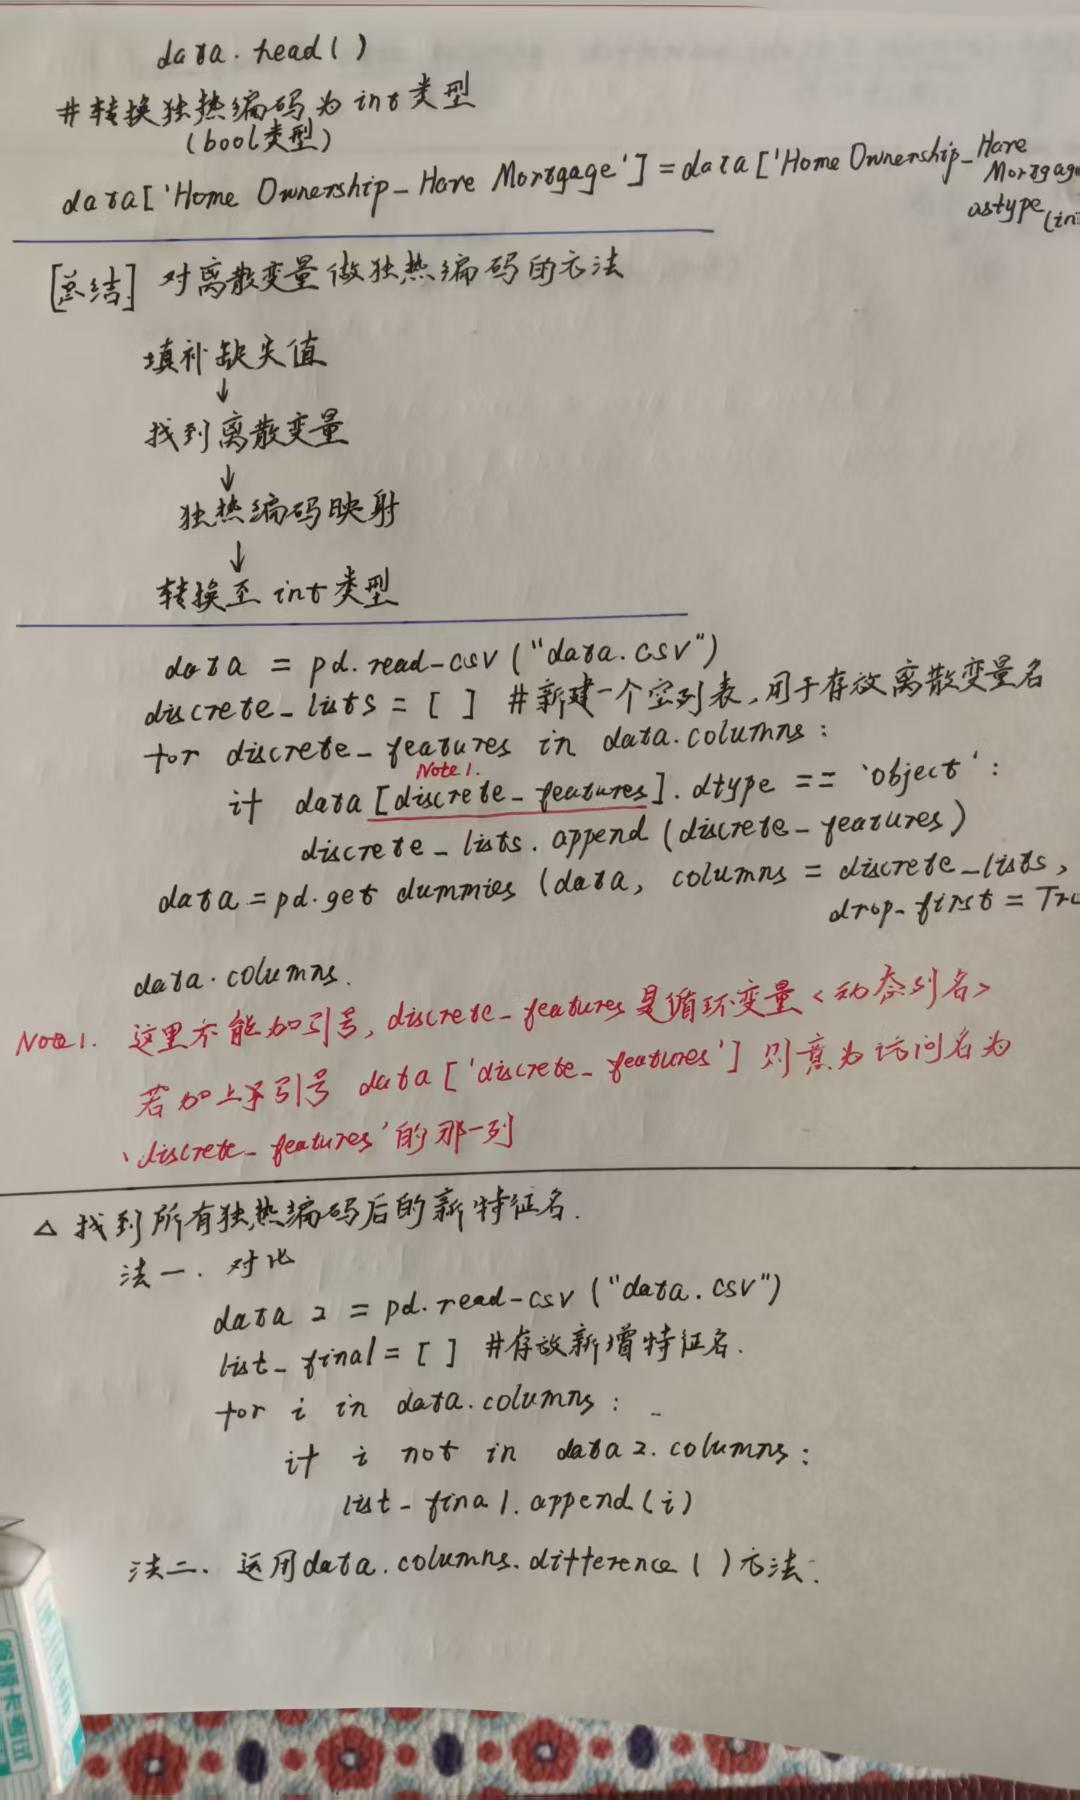 data.head()
#转换独热编码为int类型
(bool类型)
data['Home Ownership_Have Mortgage']=data['Home Ownership_Have
Mortgag
astype(in
[总结] 对离散变量做独热编码的方法
填补缺失值
↓
找到离散变量
↓
独热编码映射
↓
转换至int类型
data = pd.read-csv("data.csv")
discrete_lists = [ ] #新建一个空列表,用于存放离散变量名
for discrete_features in data.columns:
Note1.
if data[discrete_features].dtype == 'object':
discrete_lists.append(discrete_features)
data=pd.get dummies (data, columns = discrete_lists,
drop_first = Tru
data.columns.
Note1. 这里不能加引号,discrete_features是循环变量<动态列名>
若加上了引号 data['discrete_features']则意为访问名为
'discrete_features'的那一列
△ 找到所有独热编码后的新特征名.
法一. 对比
data2 = pd.read-csv("data.csv")
list_final = [ ] #存放新增特征名.
for i in data.columns:
if i not in data2.columns:
list_final.append(i)
法二. 运用data.columns.difference()方法.